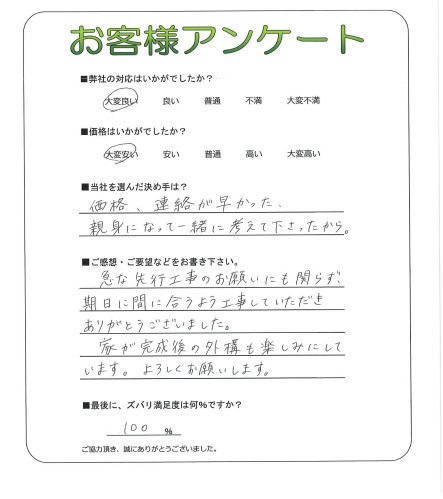 お客様アンケート
■弊社の対応はいかがでしたか？
大変良い 良い 普通 不満 大変不満
■価格はいかがでしたか？
大変安い 安い 普通 高い 大変高い
■当社を選んだ決め手は？
価格、連絡が早かった、
親身になって一緒に考えて下さったから。
■ご感想・ご要望などをお書き下さい。
急な先行工事のお願いにも関らず、
期日に間に合うよう工事していただき
ありがとうございました。
家が完成後の外構も楽しみにして
います。よろしくお願いします。
■最後に、ズバリ満足度は何％ですか？
100 ％
ご協力頂き、誠にありがとうございました。